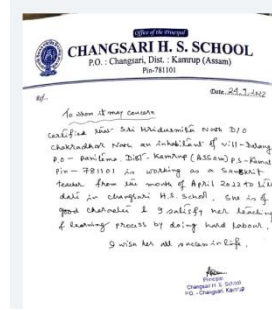 Office of the Principal
CHANGSARI H. S. SCHOOL
P.O. : Changsari, Dist. : Kamrup (Assam)
Pin-781101
Ref..
Date 24.9.2022
To whom it may concern
Certified that Sri Hridusmita Nath D/O
Chakradhar Nath, an inhabitant of vill-
P.O - Dist - Kamrup (ASSam) P.S - Kamal
Pin - 781101 is working as a Sanskrit
teacher from the month of April 2022 to till
date in Changsari H.S. School. She is of
good character & I satisfy her teaching
& learning process by doing hard labour.
I wish her all success in life.
Principal
Changsari H. S. School
P.O. - Changsari, Kamrup